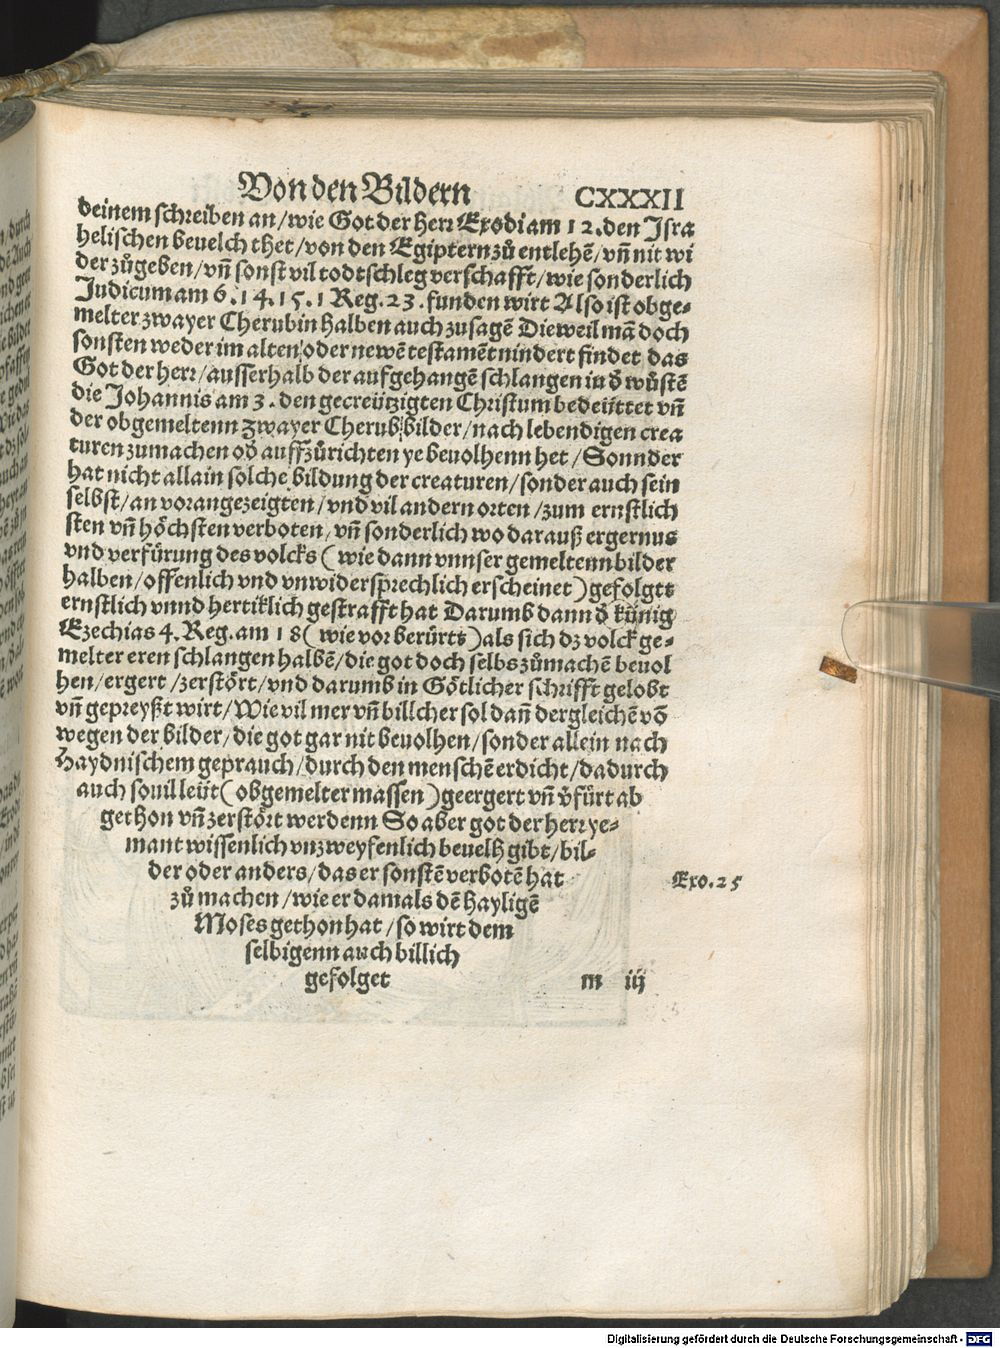 Von den Bildern CXXXII
deinem schreiben an/wie Got der herr Exodi am 12.den Jsra
helischen beuelch thet/von den Egiptern zů entlehē/vñ nit wi
der zůgeben/vñ sonst vil todtschleg verschafft/wie sonderlich
Judicum am 6.14.15.1 Reg.23.funden wirt Also ist obge-
melter zwayer Cherubin halben auch zusagē Dieweil mā doch
sonsten weder im alten oder newē testamēt nindert findet das
Got der herr/ausserhalb der aufgehangē schlangen in d̄ wůstē
die Johannis am 3. den gecreützigten Christum bedeüttet vñ
der obgemeltenn zwayer Cherub bilder/nach lebendigen crea
turen zumachen od̄ auffzůrichten ye beuolhenn het/Sonnder
hat nicht allain solche bildung der creaturen/sonder auch sein
selbst/an vorangezeigten/vnd vil andern orten/zum ernstlich
sten vñ höchsten verboten/vñ sonderlich wo darauß ergernus
vnd verfürung des volcks(wie dann vnnser gemeltenn bilder
halben/offenlich vnd vnwidersprechlich erscheinet)gefolget
ernstlich vnnd hertiklich gestrafft hat Darumb dann d̄ künig
Ezechias 4.Reg.am 18(wie vor berürts)als sich dz volck ge-
melter eren schlangen halbē/die got doch selbs zůmachē beuol
hen/ergert/zerstört/vnd darumb in Götlicher schrifft gelobt
vñ gepreyßt wirt/Wie vil mer vñ billcher sol dañ dergleichē vō
wegen der bilder/die got gar nit beuolhen/sonder allein nach
Haydnischem geprauch/durch den menschē erdicht/dadurch
auch souil leüt(obgemelter massen)geergert vñ v̄fürt ab
gethon vñ zerstört werdenn So aber got der herr ye-
mant wissenlich vnzweyfenlich beuelh gibt/bil-
der oder anders/das er sonstē verbotē hat
zů machen/wie er damals dē hayligē
Moses gethon hat/so wirt dem
selbigenn auch billich
gefolget m iij
Exo.25
Digitalisierung gefördert durch die Deutsche Forschungsgemeinschaft - DFG